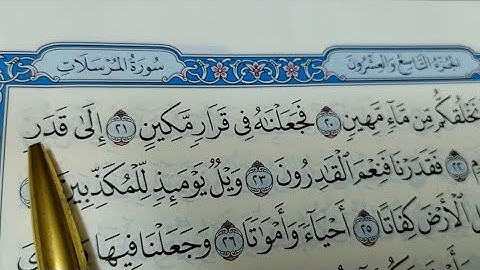 سُورَةُ الْمُرْسَلَات الجُزءُ التَّاسِع وَالعِشرُون
نَخْلُقكُّم مِّن مَّآءٍ مَّهِينٍ ٢٠ فَجَعَلْنَٰهُ فِى قَرَارٍ مَّكِينٍ ٢١ إِلَىٰ قَدَرٍ
٢٢ فَقَدَرْنَا فَنِعْمَ الْقَٰدِرُونَ ٢٣ وَيْلٌ يَوْمَئِذٍ لِّلْمُكَذِّبِينَ
الْأَرْضَ كِفَاتًا ٢٥ أَحْيَآءً وَأَمْوَٰتًا ٢٦ وَجَعَلْنَا فِيهَا